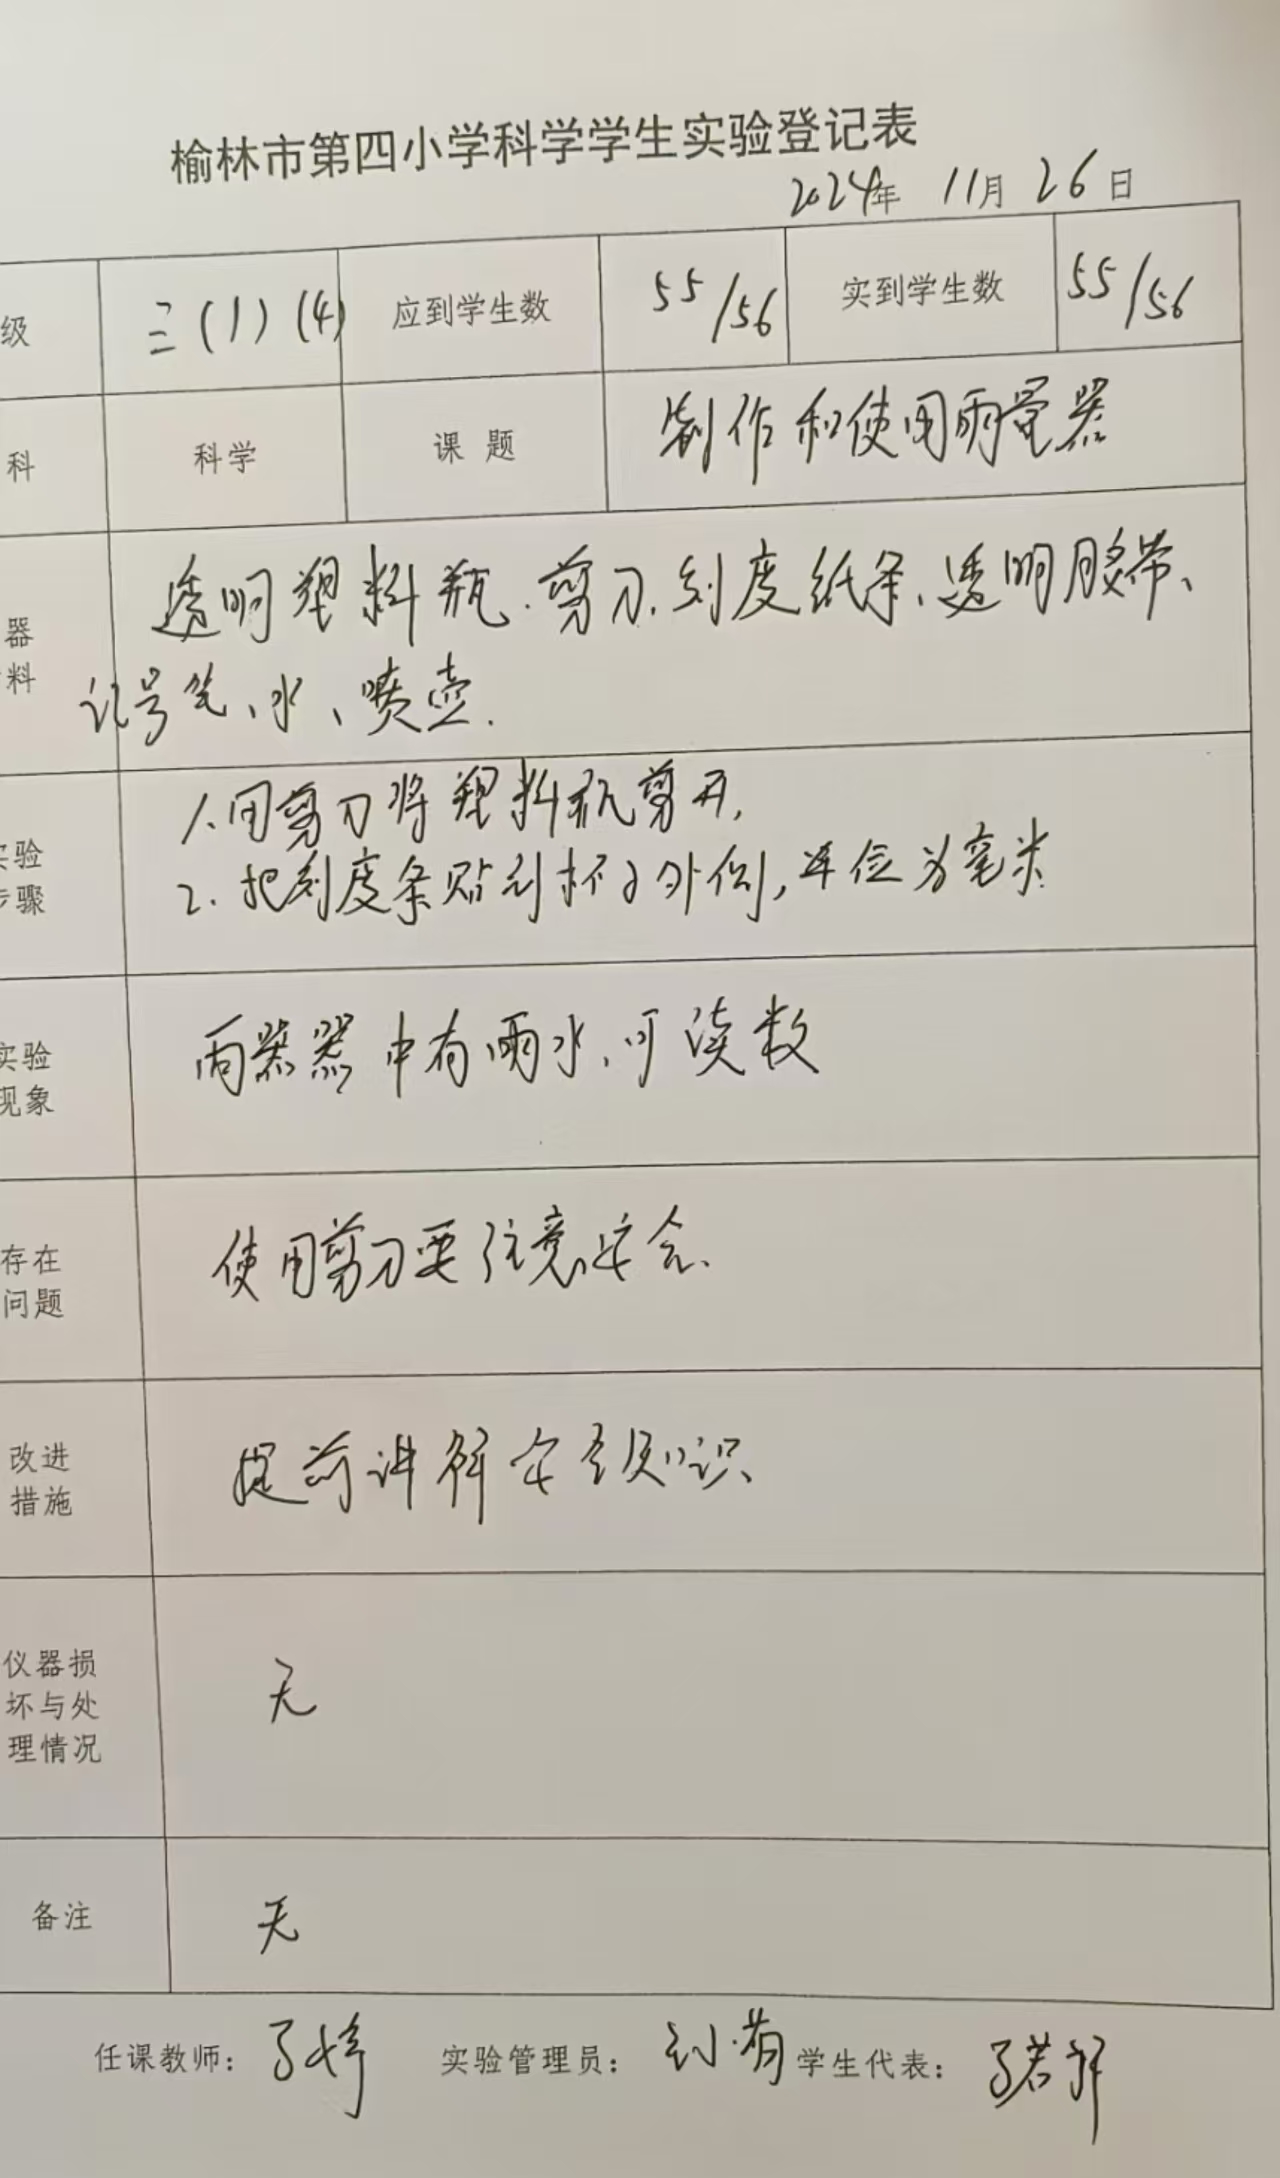 榆林市第四小学科学学生实验登记表
2024年 11月 26日
级 三(1)(4) 应到学生数 55/56 实到学生数 55/56
科 科学 课题 制作和使用雨量器
器 透明塑料瓶、剪刀、刻度纸条、透明胶带、
料 记号笔、水、喷壶.
实验 1.用剪刀将塑料瓶剪开,
步骤 2.把刻度条贴到杯子外侧,单位为毫米.
实验 中有雨水,可读数
现象
存在 使用剪刀要注意安全.
问题
改进 提前讲解安全知识、
措施
仪器损
坏与处 无
理情况
备注 无
任课教师: 实验管理员: 学生代表: